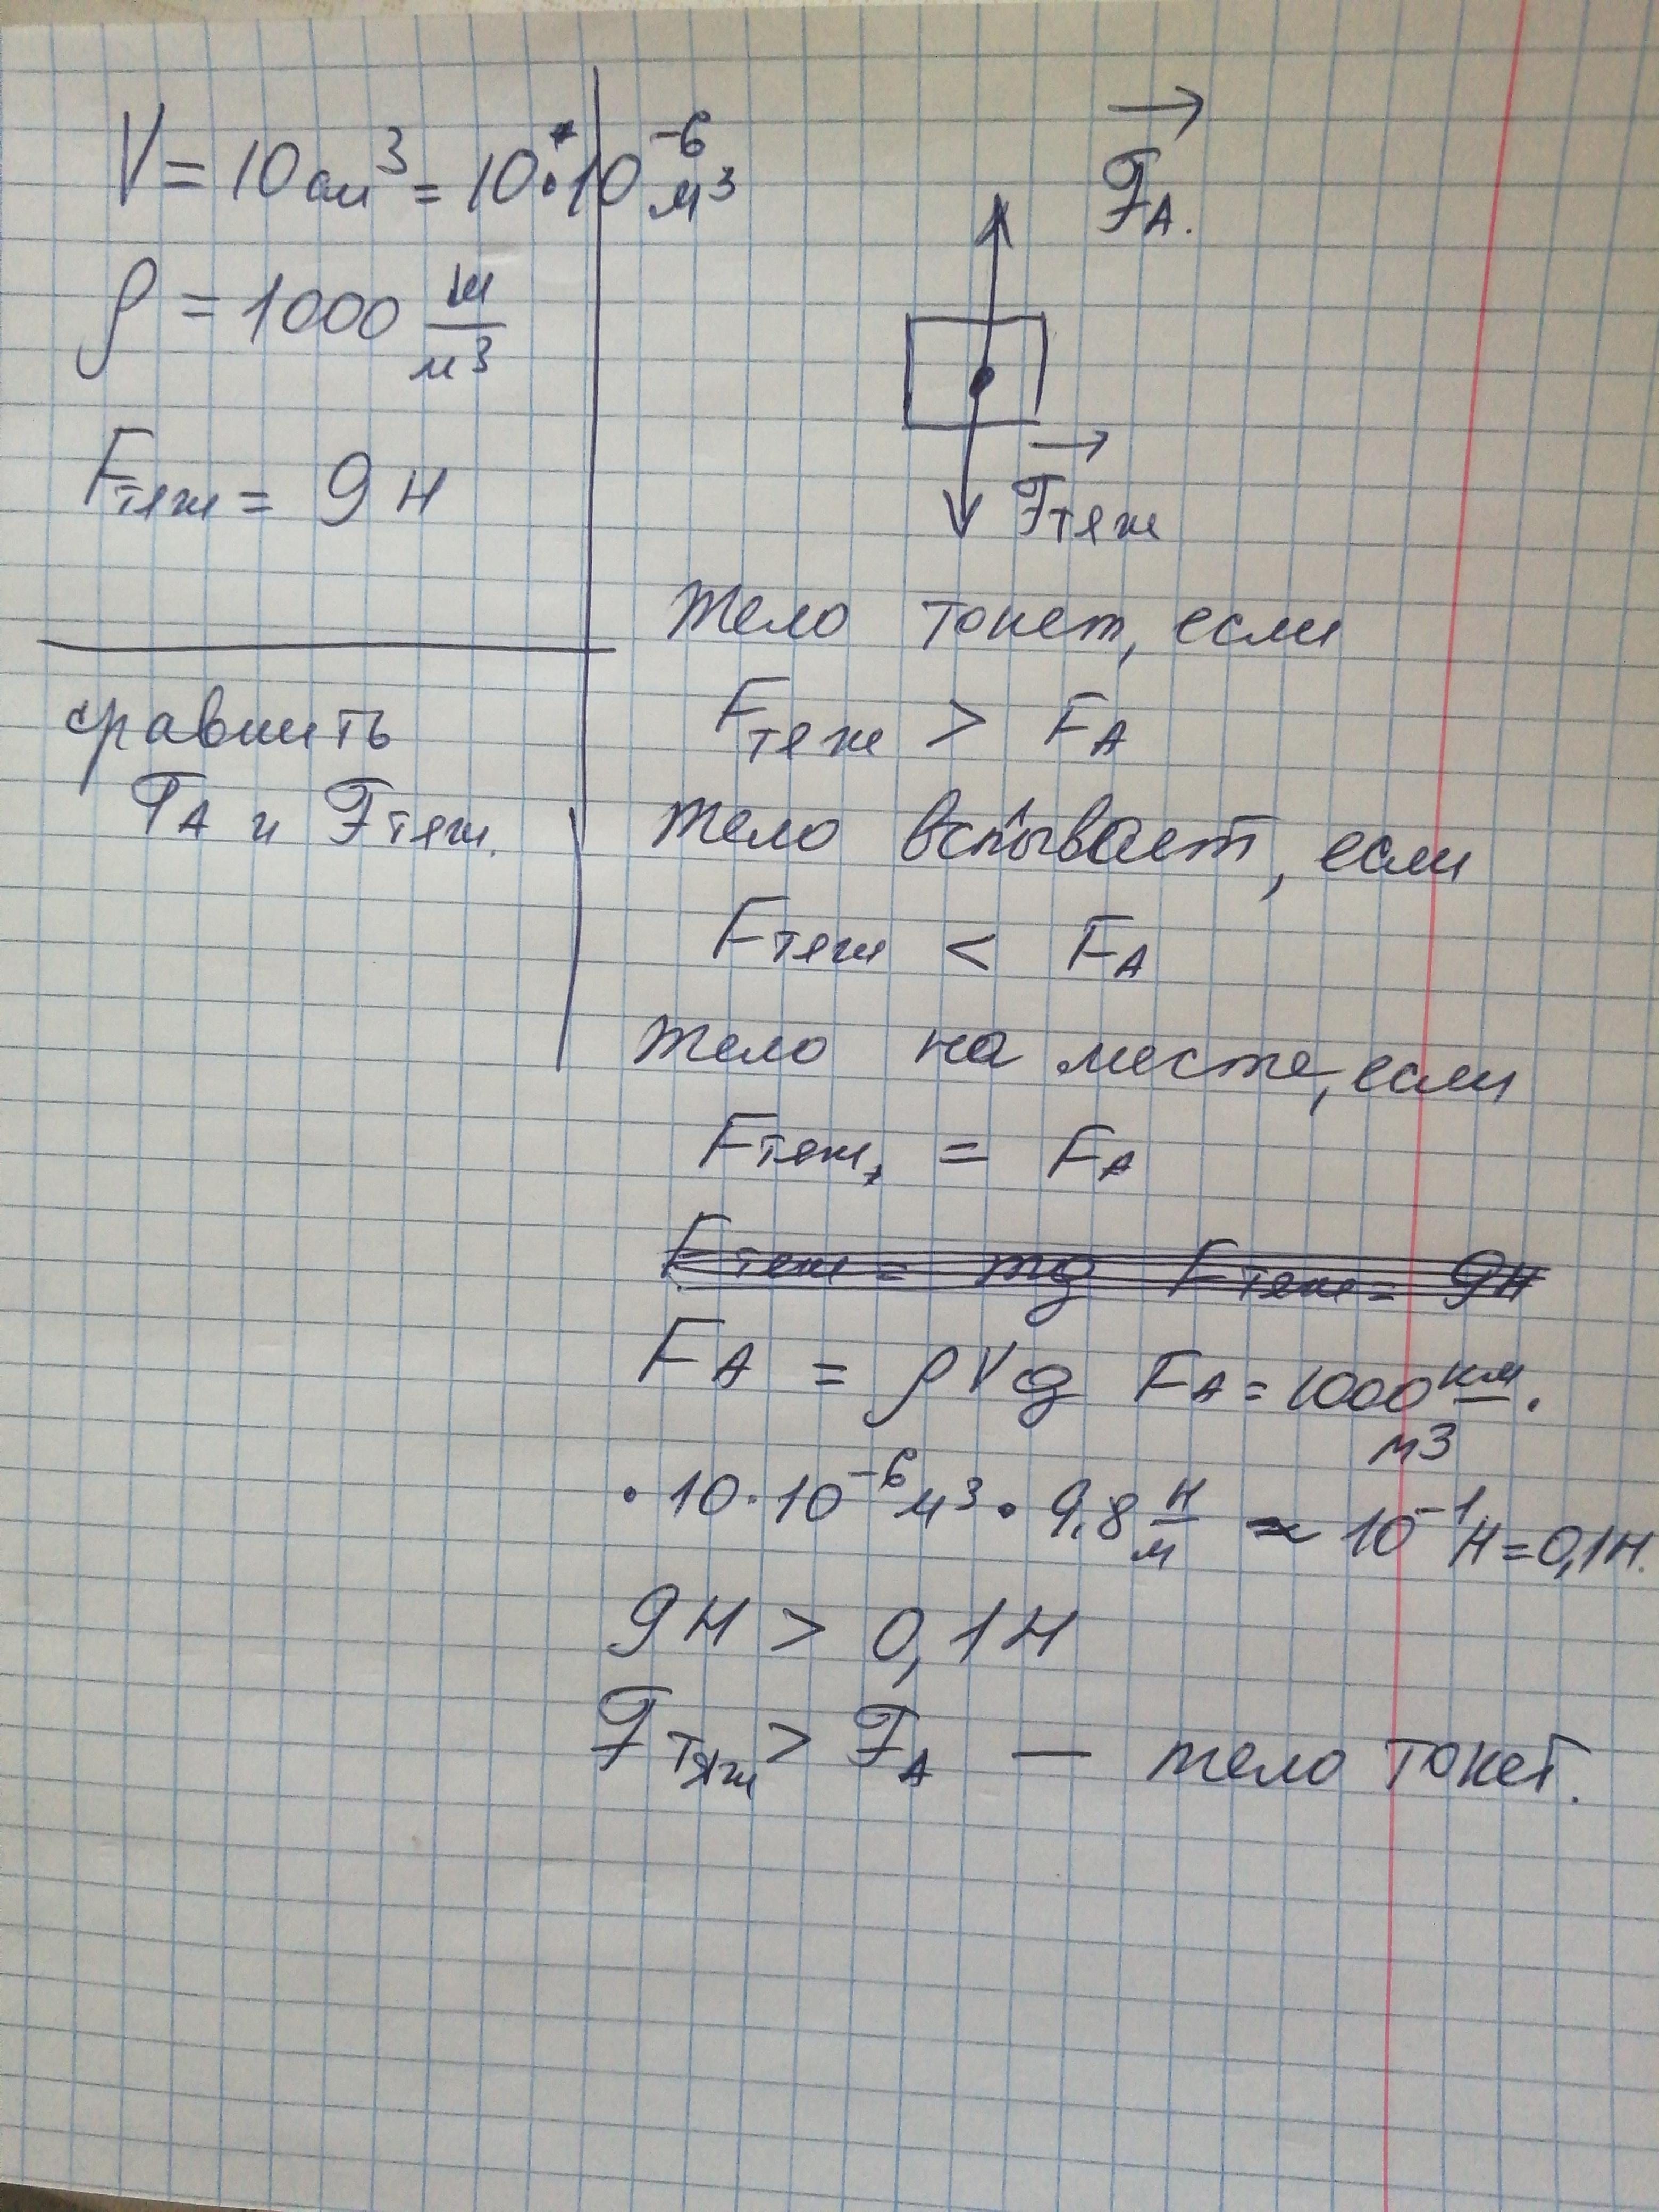 V = 10 см³ = 10 · 10⁻⁶ м³
ρ = 1000 м³
Fтяж = 9 Н
сравнить
FА и Fтяж.
FА.
Fтяж
Тело тонет, если
Fтяж > FА
Тело всплывает, если
Fтяж < FА
Тело на месте, если
Fтяж, = FА
Fтяж = mg Fтяж = 9Н
FА = ρVg FА = 1000 км/м³ ·
· 10 · 10⁻⁶ м³ · 9,8 Н/м ≈ 10⁻¹ Н = 0,1 Н.
9 Н > 0,1 Н
Fтяж > FА — тело тонет.